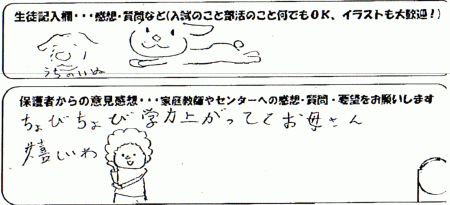 生徒記入欄・・・感想・質問など(入試のこと部活のこと何でもOK、イラストも大歓迎!)
うちのいぬ
保護者からの意見感想・・・家庭教師やセンターへの感想・質問・要望をお願いします
ちょびちょび学力上がっててお母さん
嬉しいわ